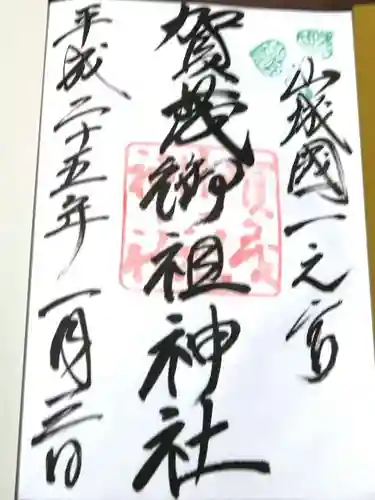 山城國一之宮
賀茂御祖神社
平成二十五年一月三日